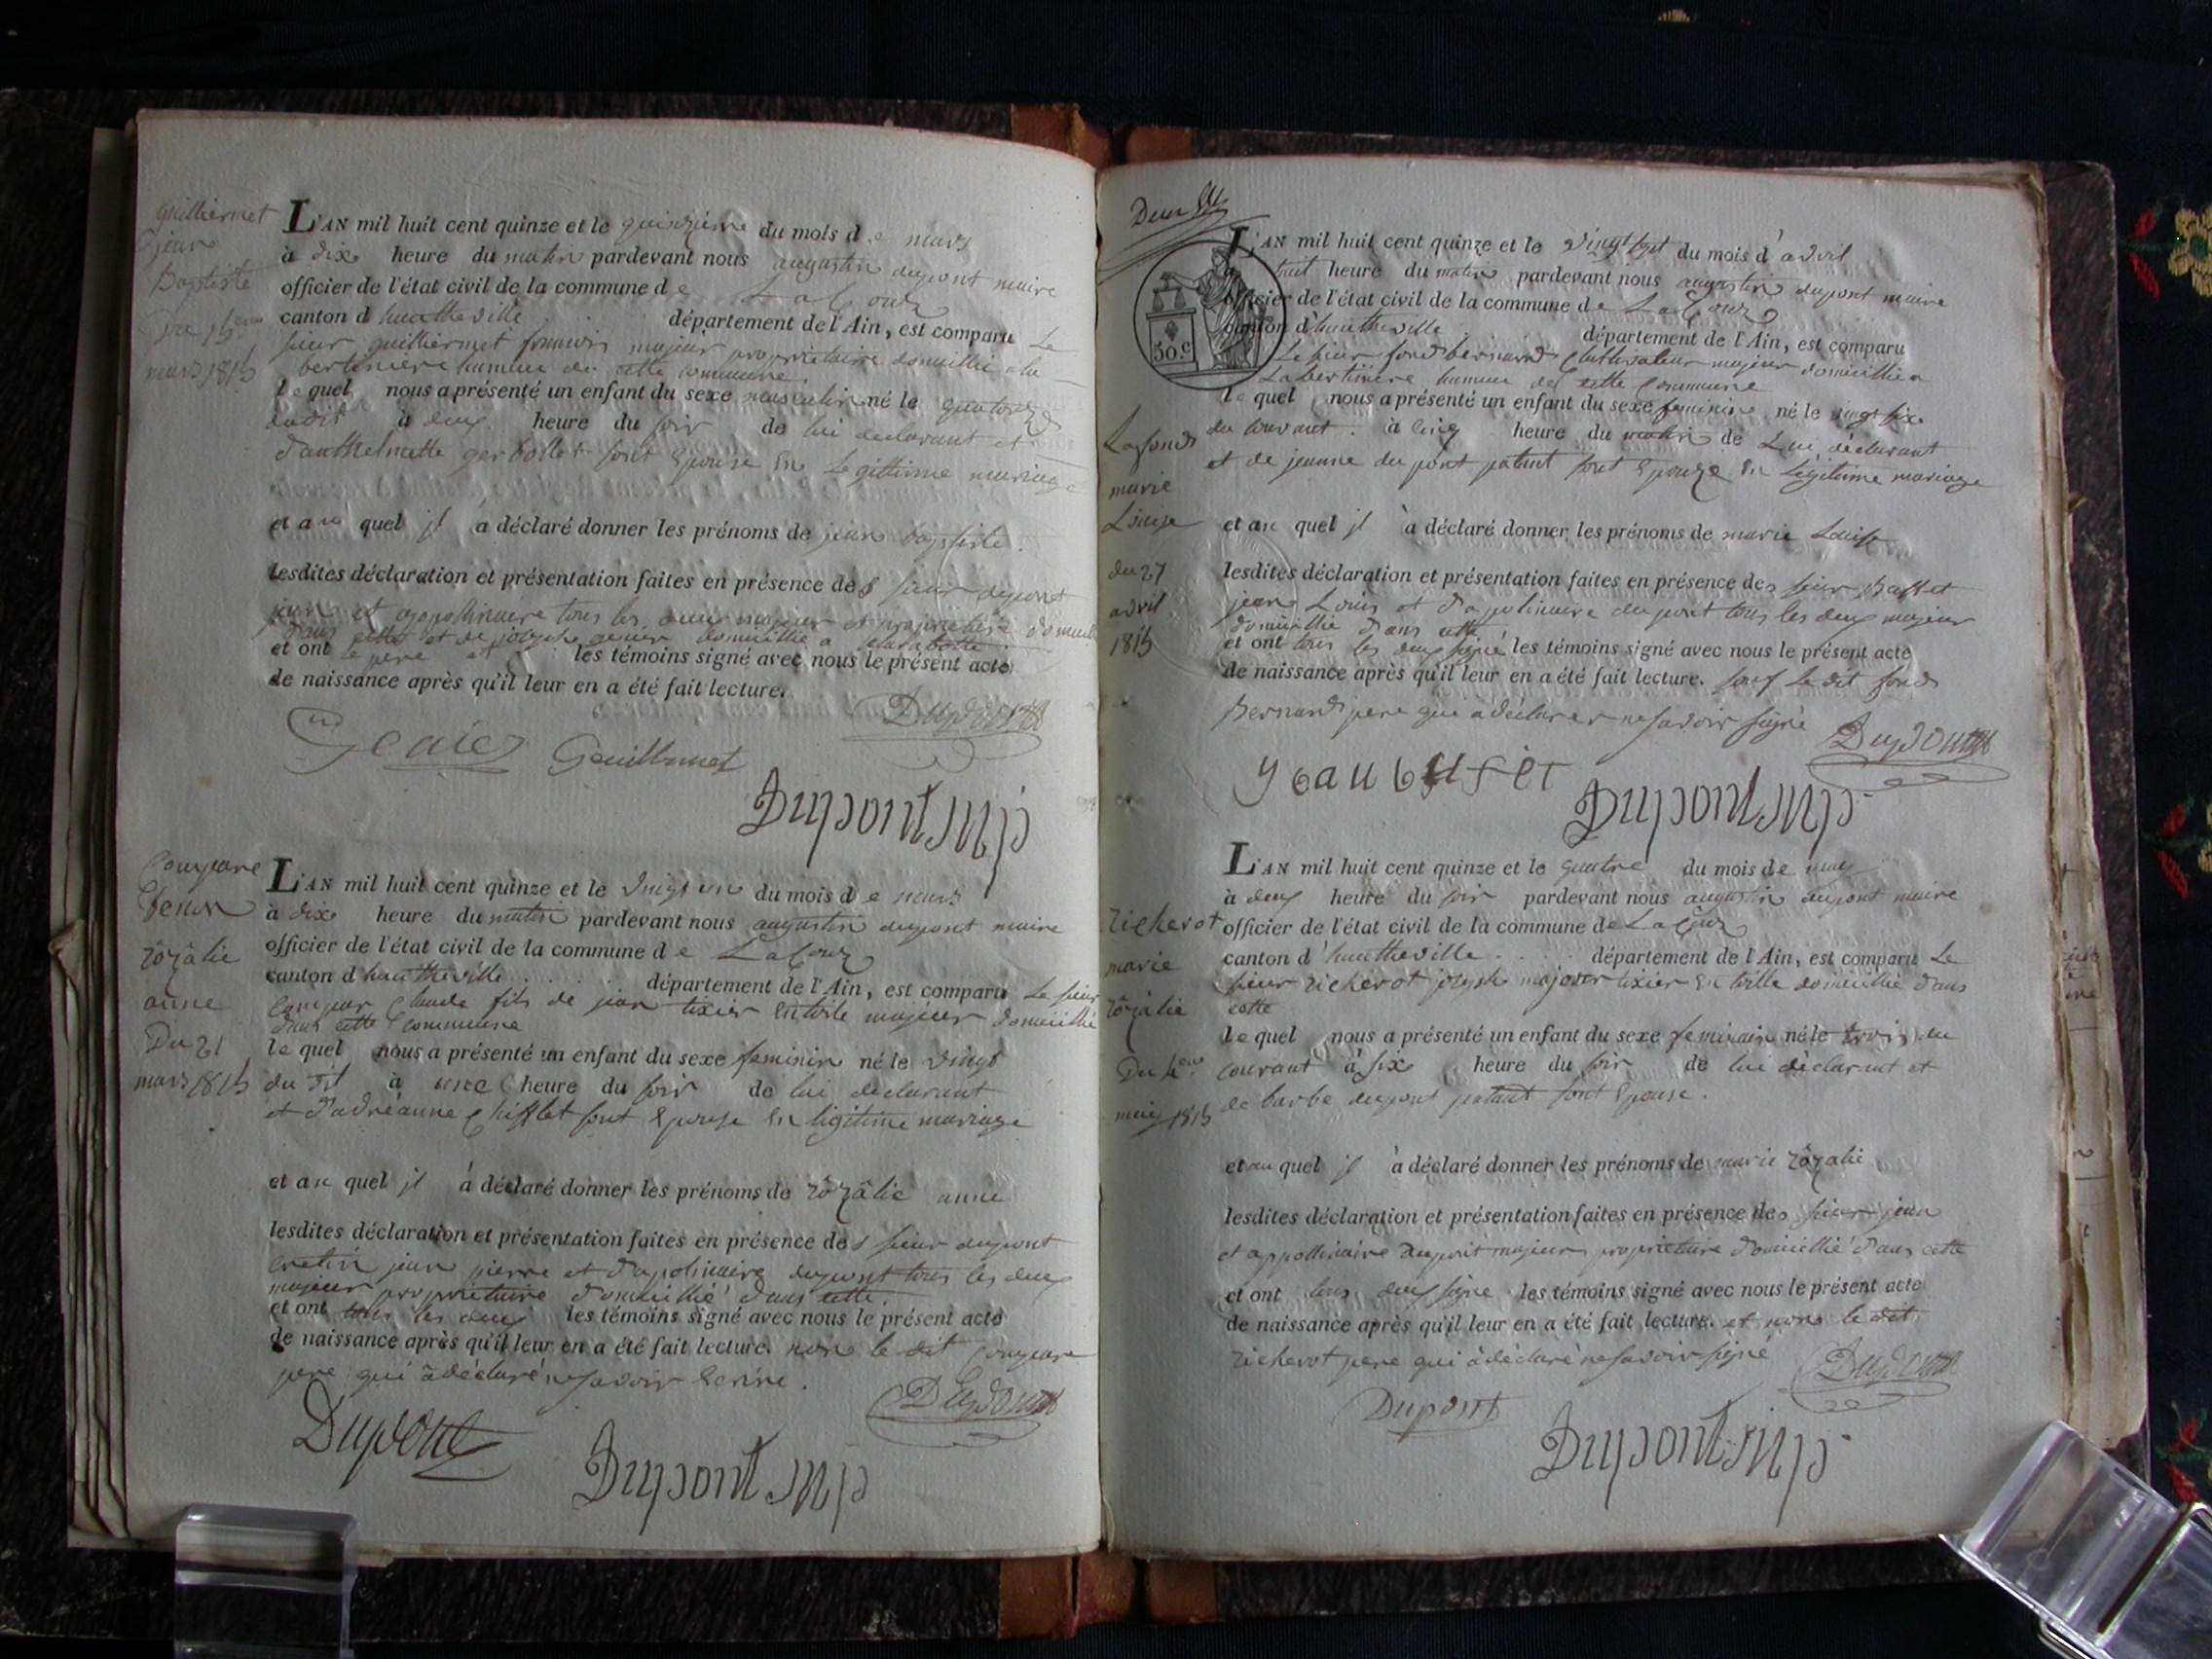 guilliermet
jean
Baptiste
mars 1815
L'AN mil huit cent quinze et le quinzieme du mois de mars
à dix heure du matin pardevant nous augustin dupont maire
officier de l'état civil de la commune de
canton d hautheville département de l'Ain, est comparu Le
sieur guilliermet francois majeur proprietaire domicillié a la
bertiniere hameau de cette commune
lequel nous a présenté un enfant du sexe masculin né le quatorze
dudit à deux heure du soir de lui declarant et
d'anthelmette gerbollet sont Epouse En Legittime mariage
et au quel il a déclaré donner les prénoms de jean baptiste.
lesdites déclaration et présentation faites en présence des sieur dupont
jean et appollinaire tous les deux majeur et proprietaire domicillié
dans cette et de joseph domicillié a
et ont le pere et les témoins signé avec nous le présent acte
de naissance après qu'il leur en a été fait lecture.
Dupont
Guillermet
Dupont
Compare
rôzâlie
anne
Du 21
mars 1815
L'AN mil huit cent quinze et le vingt un du mois de mars
à dix heure du matin pardevant nous augustin dupont maire
officier de l'état civil de la commune de
canton d hautheville département de l'Ain, est comparu Le sieur
Claude fils de jean tixier En toile majeur domicillié
dans cette Commune
lequel nous a présenté un enfant du sexe feminin né le vingt
du dit à une heure du soir de lui declarant
et d'adréanne Chifflet sont Epouse En ligitime mariage
et au quel il à déclaré donner les prénoms de rôzâlie anne
lesdites déclaration et présentation faites en présence des sieur dupont
jean pierre et d'apolinaire dupont tous les deux
majeur proprietaire domicillié dans cette.
et ont tous les deux les témoins signé avec nous le présent acte
de naissance après qu'il leur en a été fait lecture. non le dit
pere qui à déclaré ne savoir Ecrire.
Dupont
Dupont
Dupont
50.c
Lafond
marie
Louise
du 27
avril
1815
L'AN mil huit cent quinze et le vingt sept du mois d'avril
à huit heure du matin pardevant nous augustin dupont maire
officier de l'état civil de la commune de
canton d'hautheville département de l'Ain, est comparu
Le sieur fond bernard Cultivateur majeur domicillié a
La bertiniere hameau de cette Commune
lequel nous a présenté un enfant du sexe feminin né le vingt six
du courant à cinq heure du matin de Lui déclarant
et de jeanne dupont patant sont Epouze En Légitime mariage
et au quel il à déclaré donner les prénoms de marie Louise
lesdites déclaration et présentation faites en présence des sieur
jean Louis et d'apolinaire dupont tous les deux majeur
domicillié dans cette
et ont tous les deux signé les témoins signé avec nous le présent acte
de naissance après qu'il leur en a été fait lecture. sauf le dit fond
Bernard pere qui à déclarer ne savoir signé
Dupont
Dupont
richerot
marie
rôzâlie
may 1815
L'AN mil huit cent quinze et le quatre du mois de may
à deux heure du soir pardevant nous augustin dupont maire
officier de l'état civil de la commune de
canton d'hautheville département de l'Ain, est comparu Le
sieur richerot joseph majeur tixier En toille domicillié dans
cette
lequel nous a présenté un enfant du sexe feminin né le trois du
courant à six heure du soir de lui déclarant et
de barbe dupont patant sont Epouse.
et au quel il à déclaré donner les prénoms de marie rôzalie
lesdites déclaration et présentation faites en présence des sieur jean
et appollinaire dupont majeur proprietaire domicillié dans cette
et ont tous deux signé les témoins signé avec nous le présent acte
de naissance après qu'il leur en a été fait lecture. et non le dit
richerot pere qui à déclaré ne savoir signé
Dupont
Dupont
Dupont